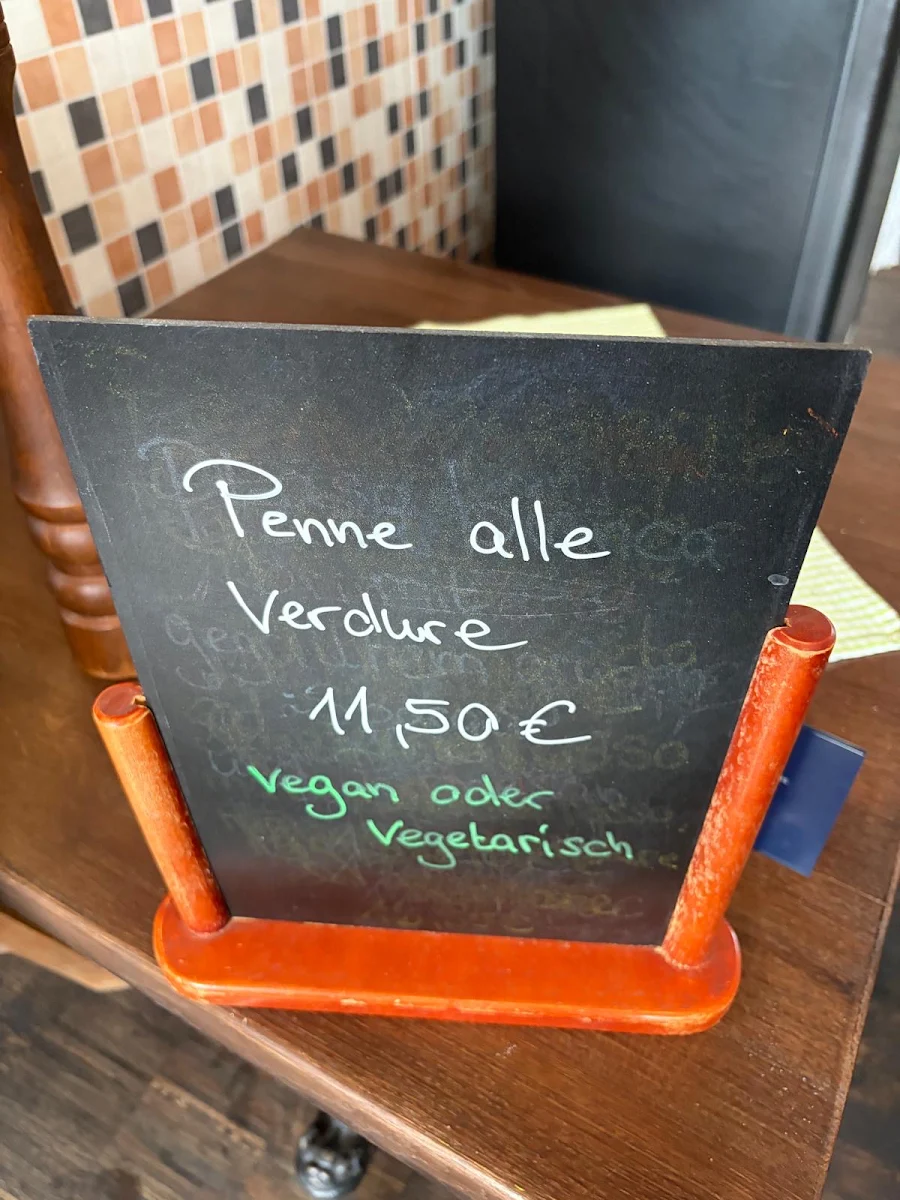 Penne alle
Verdure
11,50 €
Vegan oder
Vegetarisch